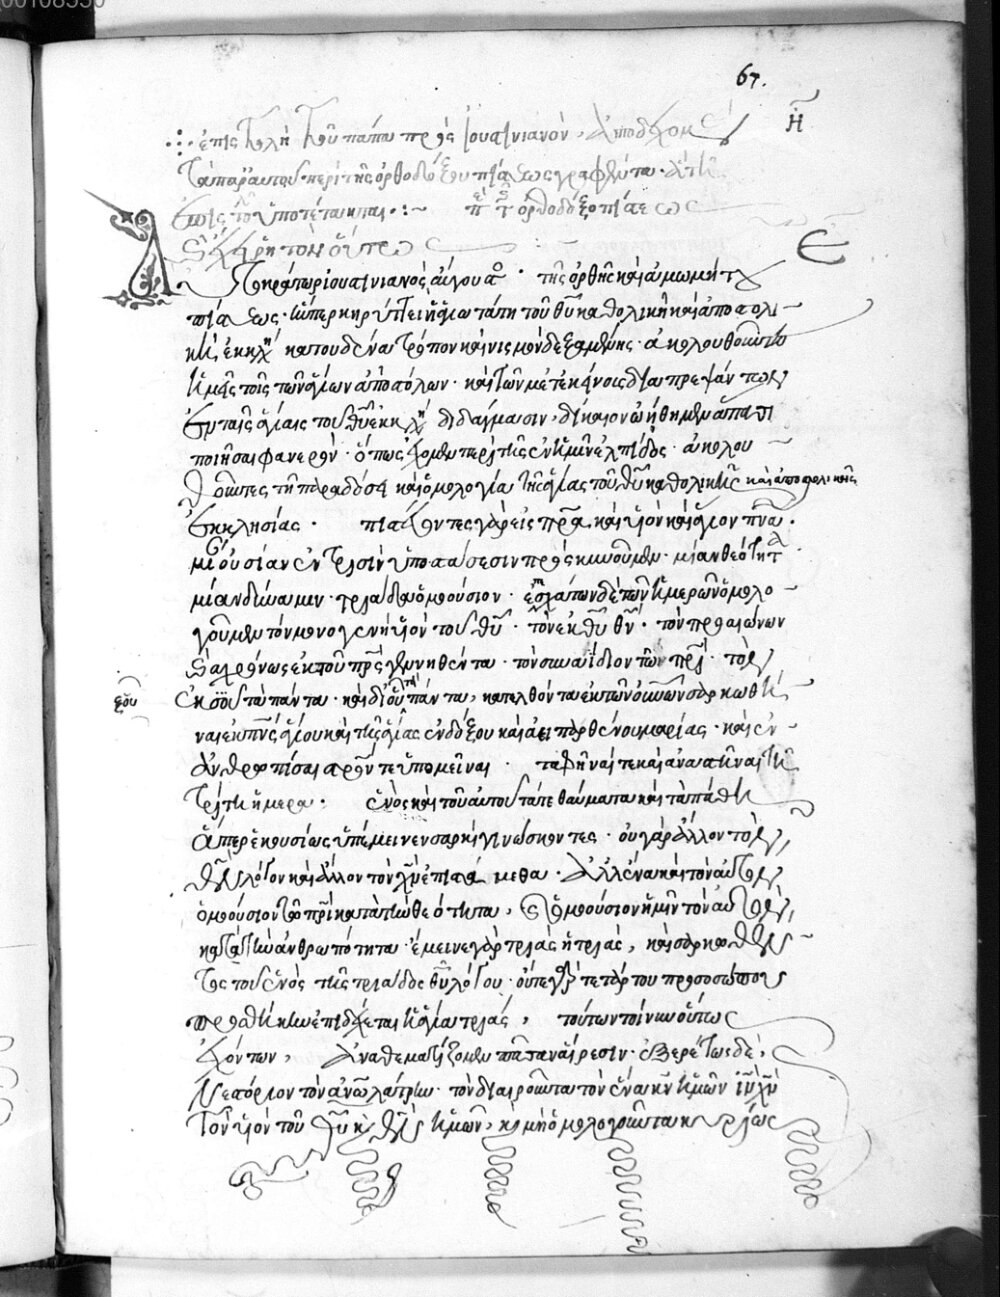 67.
Ἐπιστολὴ τοῦ πάπα πρὸς Ἰουστινιανὸν, ἀποδεχομένου
τὰ παρ' αὐτοῦ περὶ τῆς ὀρθοδόξου πίστεως γραφέντα
πίστεως
Αὐτοκράτωρ Ἰουστινιανὸς αὔγουστος · τῆς ὀρθῆς καὶ ἀμωμήτου
πίστεως · ἥνπερ κηρύττει ἡ ἁγιωτάτη τοῦ θυ καθολικὴ καὶ ἀποστολι
κὴ ἐκκλη κατ' οὐδένα τρόπον καινισμὸν δεξαμένης · ἀκολουθοῦντες
ἡμεῖς τοῖς τῶν ἁγίων ἀποστόλων · καὶ τῶν μετ' ἐκείνοις διαπρεψάντων
ἐν ταῖς ἁγίαις τοῦ θυ ἐκκλη διδάγμασιν, δίκαιον ᾠήθημεν ἅπασι
ποιῆσαι φανερὸν · ὅπως ἔχομεν περὶ τῆς ἐν ἡμῖν ἐλπίδος · ἀκολου
θοῦντες τῇ παραδόσει καὶ ὁμολογία τῆς ἁγίας τοῦ θυ καθολικῆς καὶ ἀποστολικῆς
ἐκκλησίας · πιστεύοντες γὰρ εἰς πρα καὶ υἱὸν καὶ ἅγιον πνα ·
μίαν οὐσίαν ἐν τρισὶν ὑποστάσεσιν προσκυνοῦμεν · μίαν θεότητα
μίαν δύναμιν · τριάδα ὁμοούσιον · ἐπ' ἐσχάτων δὲ τῶν ἡμερῶν ὁμολο
γοῦμεν τὸν μονογενῆ υἱὸν τοῦ θυ · τὸν ἐκ θυ θν · τὸν πρὸ αἰώνων
καὶ ἀχρόνως ἐκ τοῦ πρς γεννηθέντα · τὸν συναΐδιον τῶ πρι · τὸν
ἐξ οὗ τὰ πάντα · καὶ δι' οὗ τὰ πάντα, κατελθόντα ἐκ τῶν οὐνῶν σαρκωθῆ
ναι ἐκ πνς ἁγίου καὶ τῆς ἁγίας ἐνδόξου καὶ ἀειπαρθένου μαρίας · καὶ ἐν
ανθρωπίσαι στρόν τε ὑπομεῖναι · ταφῆναί τε καὶ ἀναστῆναι τῇ
τρίτη ἡμέρα · ἑνὸς καὶ τοῦ αὐτοῦ τά τε θαύματα καὶ τὰ πάθη
ἅπερ ἑκουσίως ὑπέμεινεν σαρκὶ γινώσκοντες · οὐ γὰρ ἄλλον τὸν
θν λόγον καὶ ἄλλον τὸν χν ἐπιστάμεθα · ἀλλ' ἕνα καὶ τὸν αὐτὸν
ὁμοούσιον τῶ πρι κατὰ τὴν θεότητα, καὶ ὁμοούσιον ἡμῖν τὸν αὐτὸν,
κατὰ τὴν ἀνθρωπότητα · ἔμεινε γὰρ τριὰς ἡ τριὰς, καὶ σαρκωθέν
τος τοῦ ἑνὸς τῆς τριάδος θυ λόγου · οὔτε γὰρ τετάρτου προσώπου
προσθήκην ἐπιδέχεται ἡ ἁγία τριὰς, τούτων τοίνυν οὕτως
ἐχόντων, ἀναθεματίζομεν πᾶσαν αἵρεσιν · ἐξαιρέτως δὲ,
Νεστόριον τὸν ἀνθρωπολάτρην · τὸν διαιροῦντα τὸν ἕνα κν ἡμῶν ιν χν
τὸν υἱὸν τοῦ θυ κ θν ἡμῶν, κ μὴ ὁμολογοῦντα κυρίως